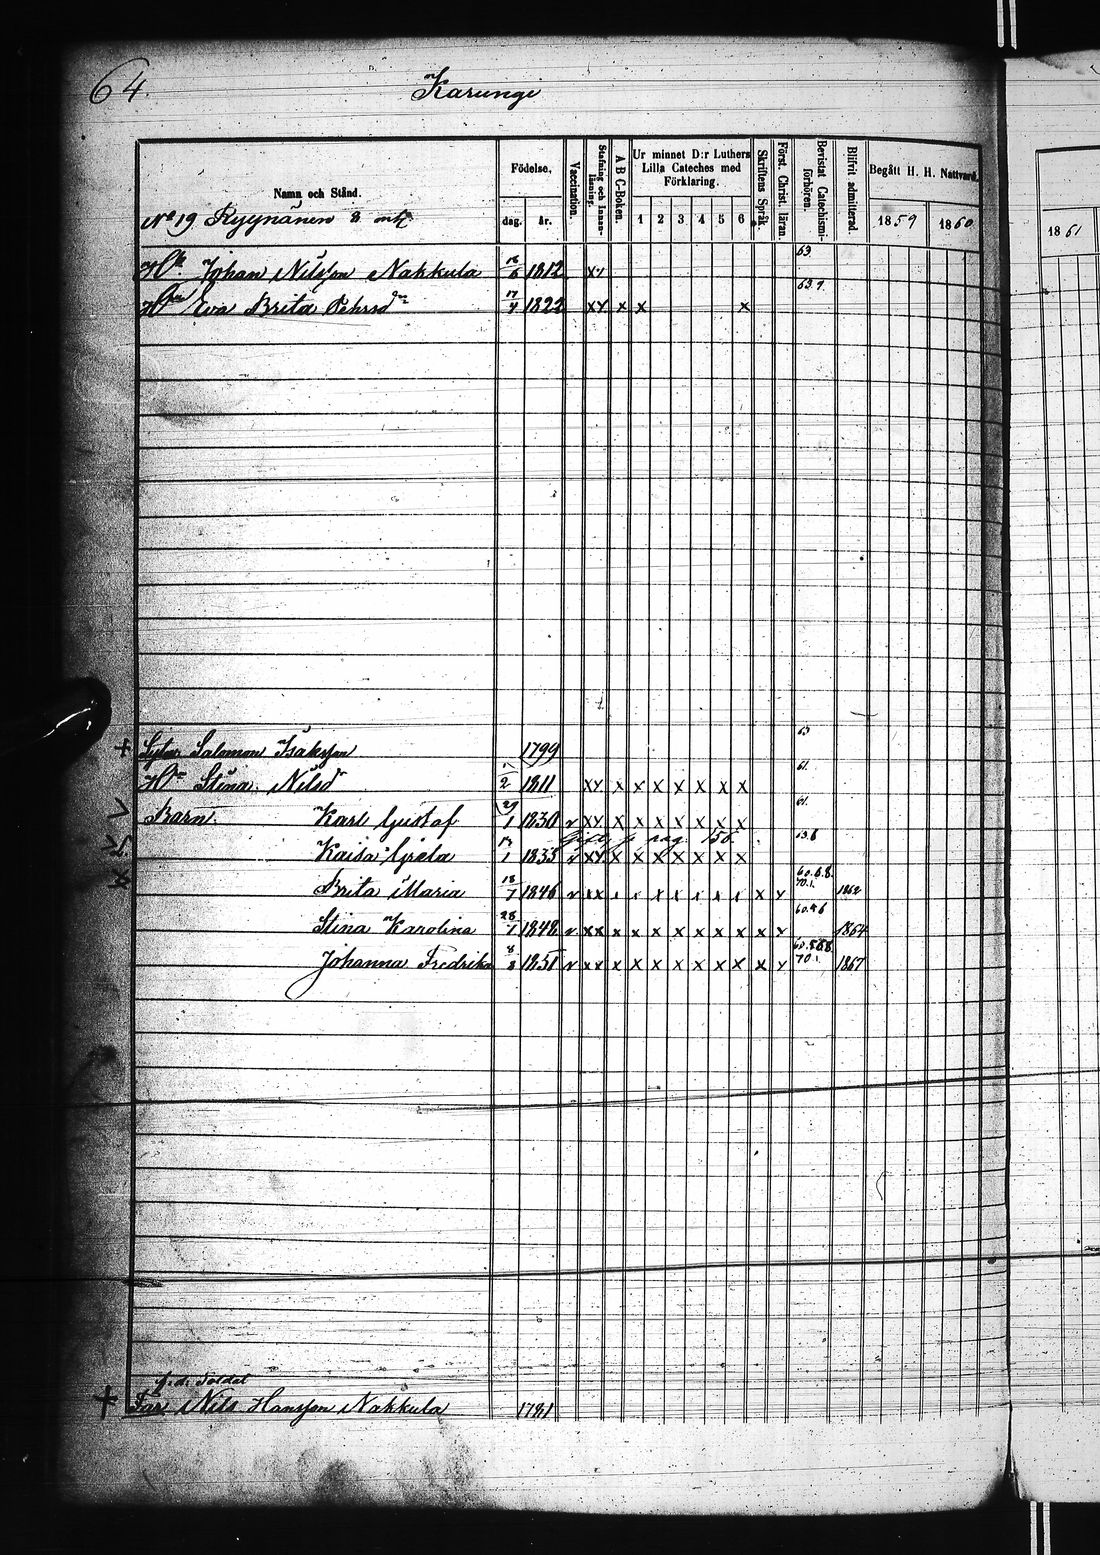 64.
Karungi
Namn och Stånd. Födelse, Vaccination. Stafning och innanläsning. A B C-Boken. Ur minnet D:r Luthers Lilla Cateches med Förklaring. Skriftens Språk. Först. Christ. läran. Bevistat Catechismiförhören. Blifvit admitterad Begått H. H. Nattvard.
dag. år. 1 2 3 4 5 6 1859 1860 1861
No 19 Ryynänen
Johan Nilsson Nakkula 16/6 1812 xx 63.
Eva Brita Pehrsd 17/4 1822 xx x x x 63.9.
+ Salomon Isaksson 1799 63
Stina Nilsd 1811 xx x x x x x x x 61.
Barn. Karl Gustaf 29/1 1830 v xx x x x x x x x 61.
Gift, pag. 156.
Kaisa Greta 1835 v xx x x x x x x x
Brita Maria 18/7 1846 v xx x x x x x x x x x 60.6.8. 70.1. 1862
Stina Karolina 28/1 1848 v xx x x x x x x x x x 1864
Johanna Fredrika 8/8 1851 v xx x x x x x x x x x 70.1. 1867
f.d. Soldat
+ Far Nils Hansson Nakkula 1781